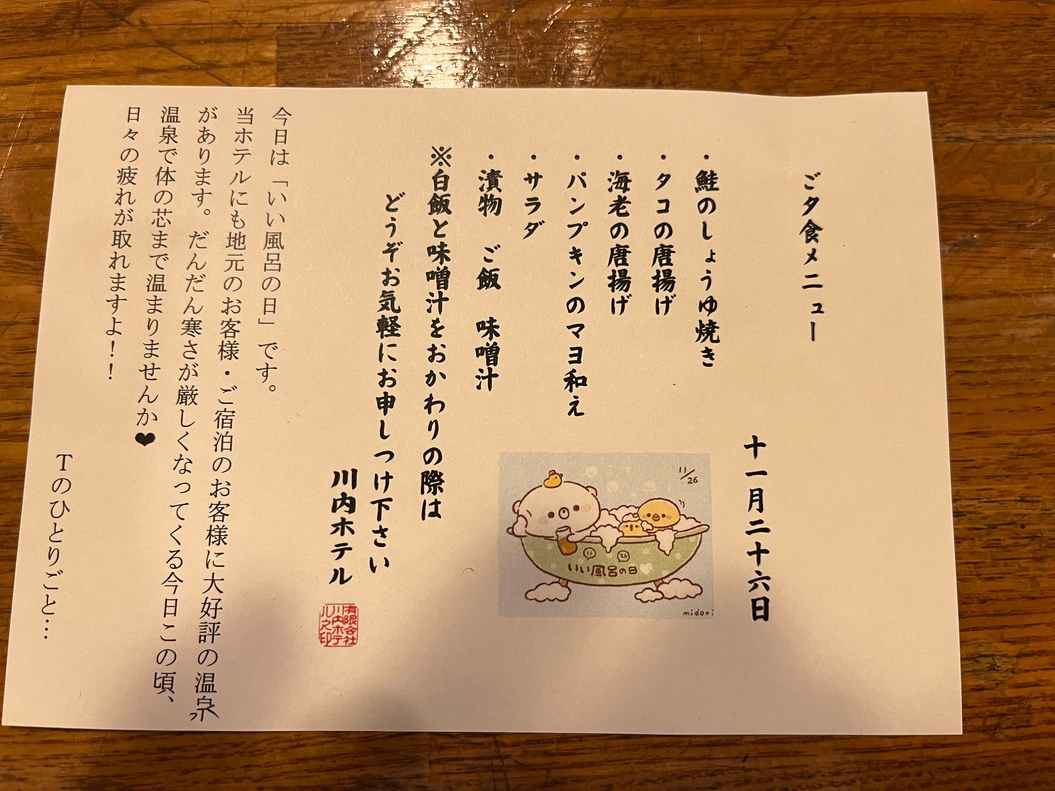 ご夕食メニュー
十一月二十六日
・鮭のしょうゆ焼き
・タコの唐揚げ
・海老の唐揚げ
・パンプキンのマヨ和え
・サラダ
・漬物　ご飯　味噌汁
※白飯と味噌汁をおかわりの際は
どうぞお気軽にお申しつけ下さい
川内ホテル
有限会社
川内ホテ
ル之印
11/26
いい風呂の日
midori
今日は「いい風呂の日」です。
当ホテルにも地元のお客様・ご宿泊のお客様に大好評の温泉
があります。だんだん寒さが厳しくなってくる今日この頃、
温泉で体の芯まで温まりませんか❤
日々の疲れが取れますよ！！
Tのひとりごと…